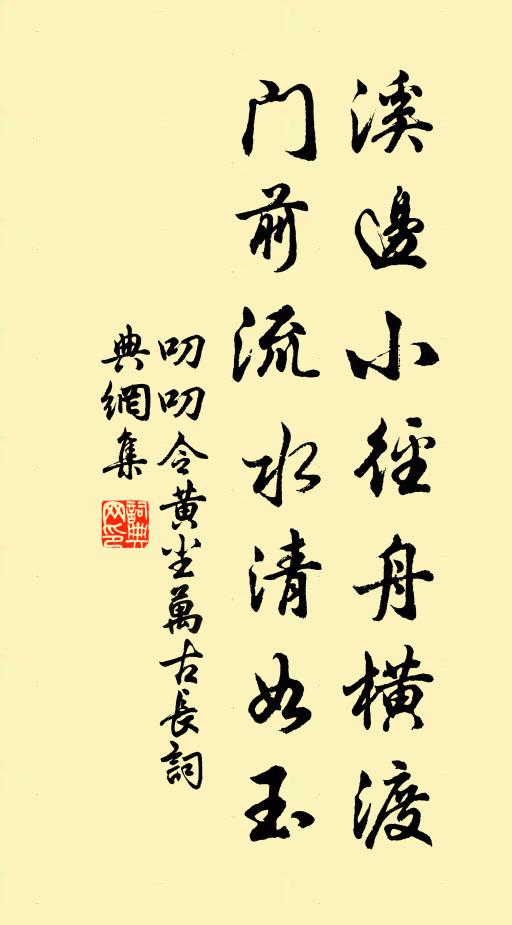 溪邊小徑舟橫渡
門前流水清如玉
叨叨令黃尘萬古長詞
典網集
詞典
网印